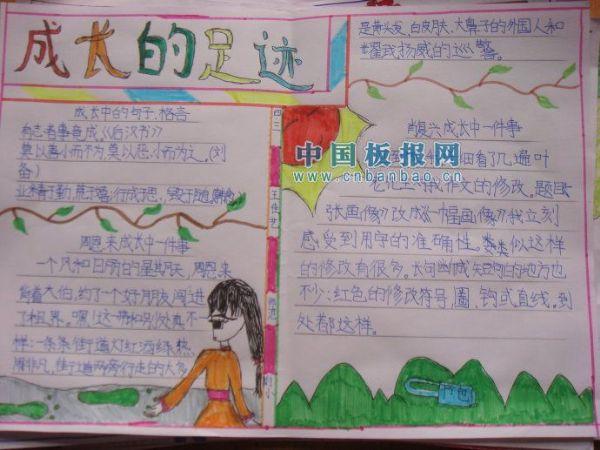 成长的足迹
成长中的句子、格言
有志者事竟成,《后汉书》
莫以善小而不为,莫以恶小而为之。(刘
备)
业精于勤,荒于嬉;行成于思,毁于随。
周恩来成长中一件事
一个风和日丽的星期天,周恩来
背着大伯,约了一个好朋友,闯进
了租界。嘿!这一带和别处真不一
样:一条条街道灯红酒绿,热
闹非凡,街道两旁行走的大多
是黄头发、白皮肤、大鼻子的外国人和
耀武扬威的巡警。
四三
肖复兴成长中一件事
中国板报网
www.cnbanbao.cn
细看了几遍叶
老先生对我作文的修改。题目
张画像》改成《一幅画像》我立刻
感受到用字的准确性。类似这样
的修改有很多。长句断成短句的地方也
不少;红色的修改符号,圈、钩或直线。到
处都这样。